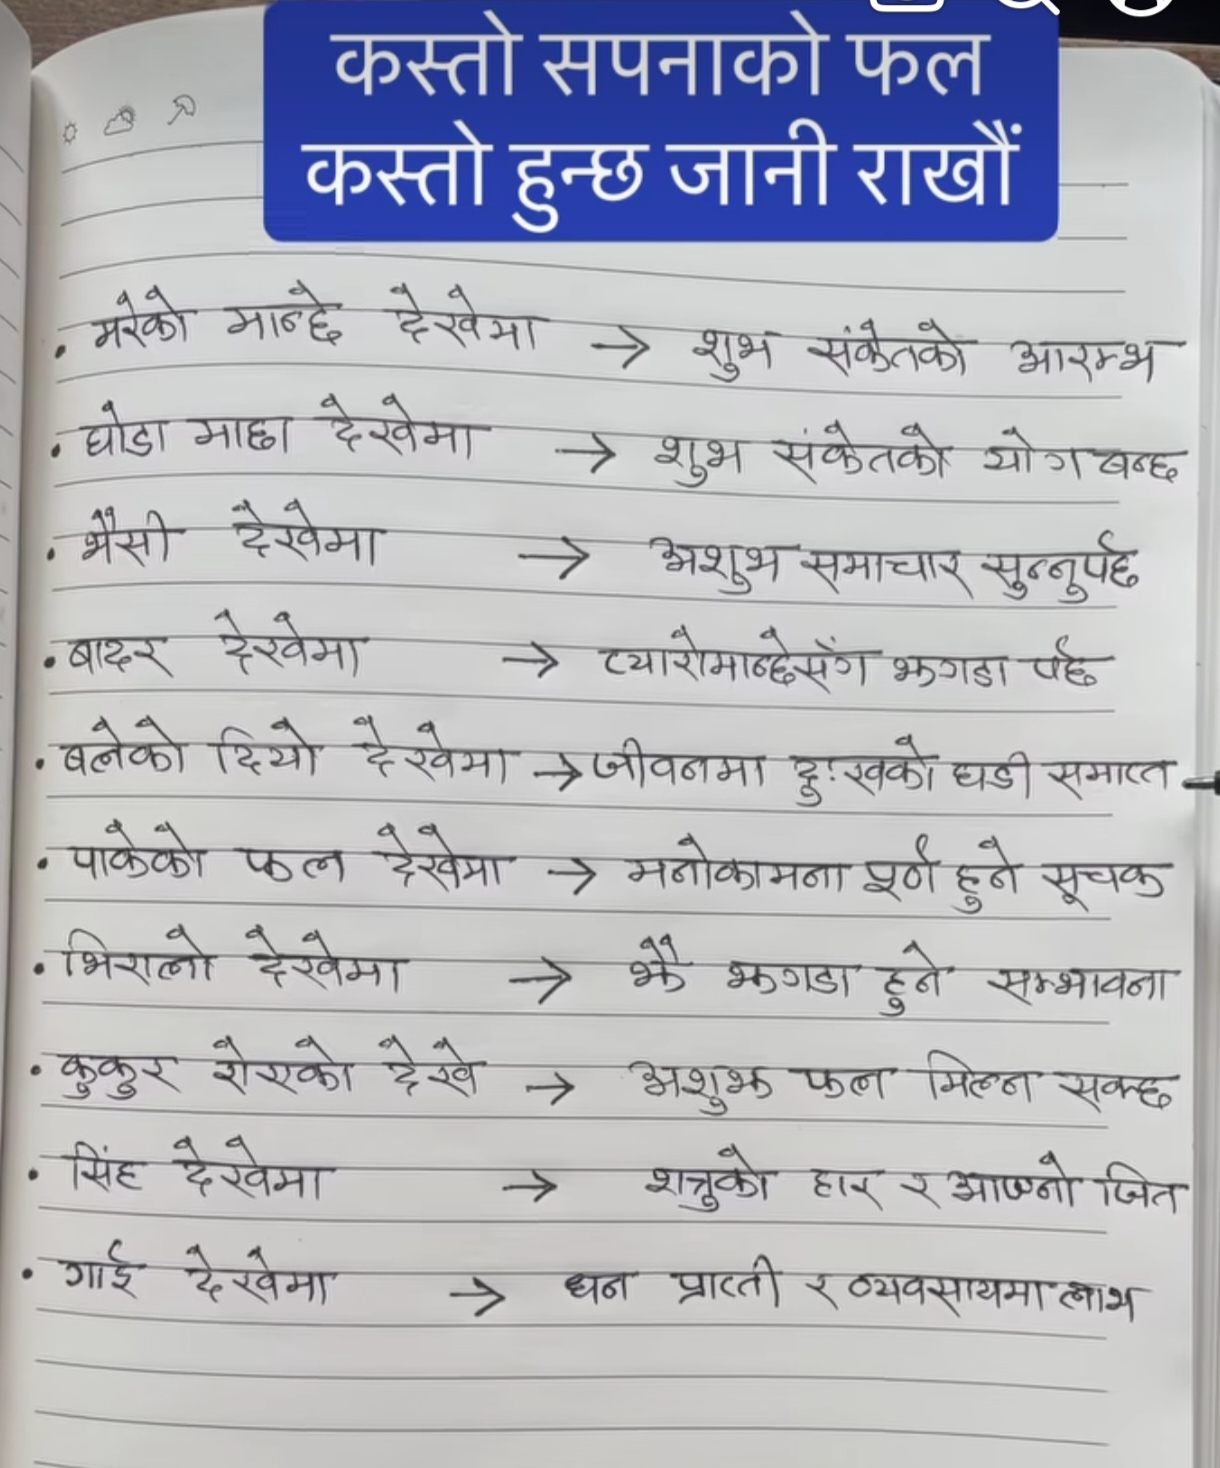 कस्तो सपनाको फल
कस्तो हुन्छ जानी राखौं
• मरेको मान्छे देखेमा → शुभ संकेतको आरम्भ
• घोडा माछा देखेमा → शुभ संकेतको योग बन्छ
• भैसी देखेमा → अशुभ समाचार सुन्नुपर्छ
• बादर देखेमा → प्यारोमान्छेसँग झगडा पर्छ
• बलेको दियो देखेमा → जीवनमा दुःखको घडी समाप्त
• पाकेको फल देखेमा → मनोकामना पूर्ण हुने सूचक
• भिरालो देखेमा → झै झगडा हुने सम्भावना
• कुकुर रोएको देखे → अशुभ फल मिल्न सक्छ
• सिंह देखेमा → शत्रुको हार र आफ्नो जित
• गाई देखेमा → धन प्राप्ती र व्यवसायमा लाभ